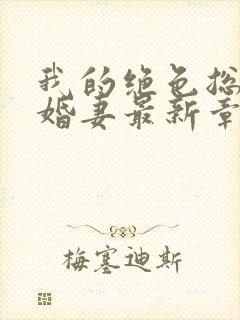 我的绝色总
婚妻最新章
梅塞迪斯